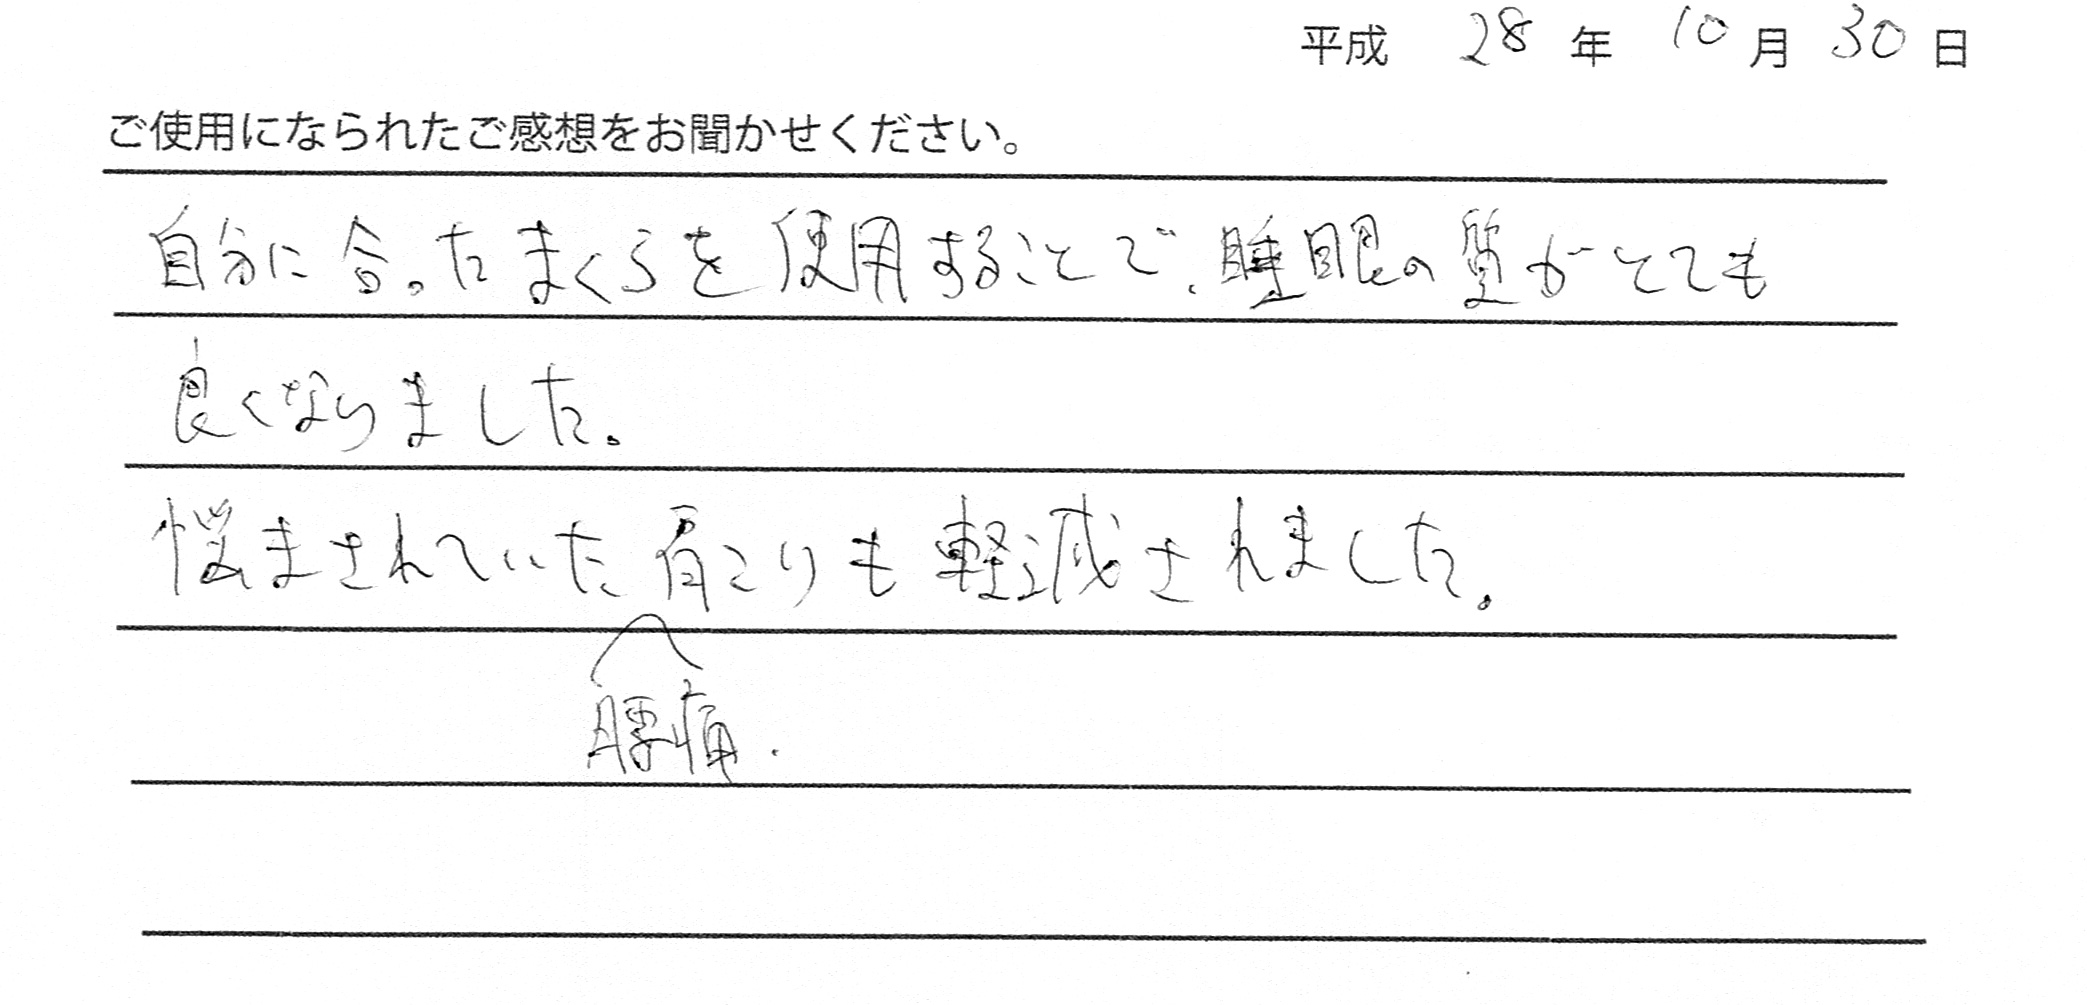 平成 28 年 10 月 30 日
ご使用になられたご感想をお聞かせください。
自分に合ったまくらを使用することで、睡眠の質がとても
良くなりました。
悩まされていた肩こりも軽減されました。
腰痛.